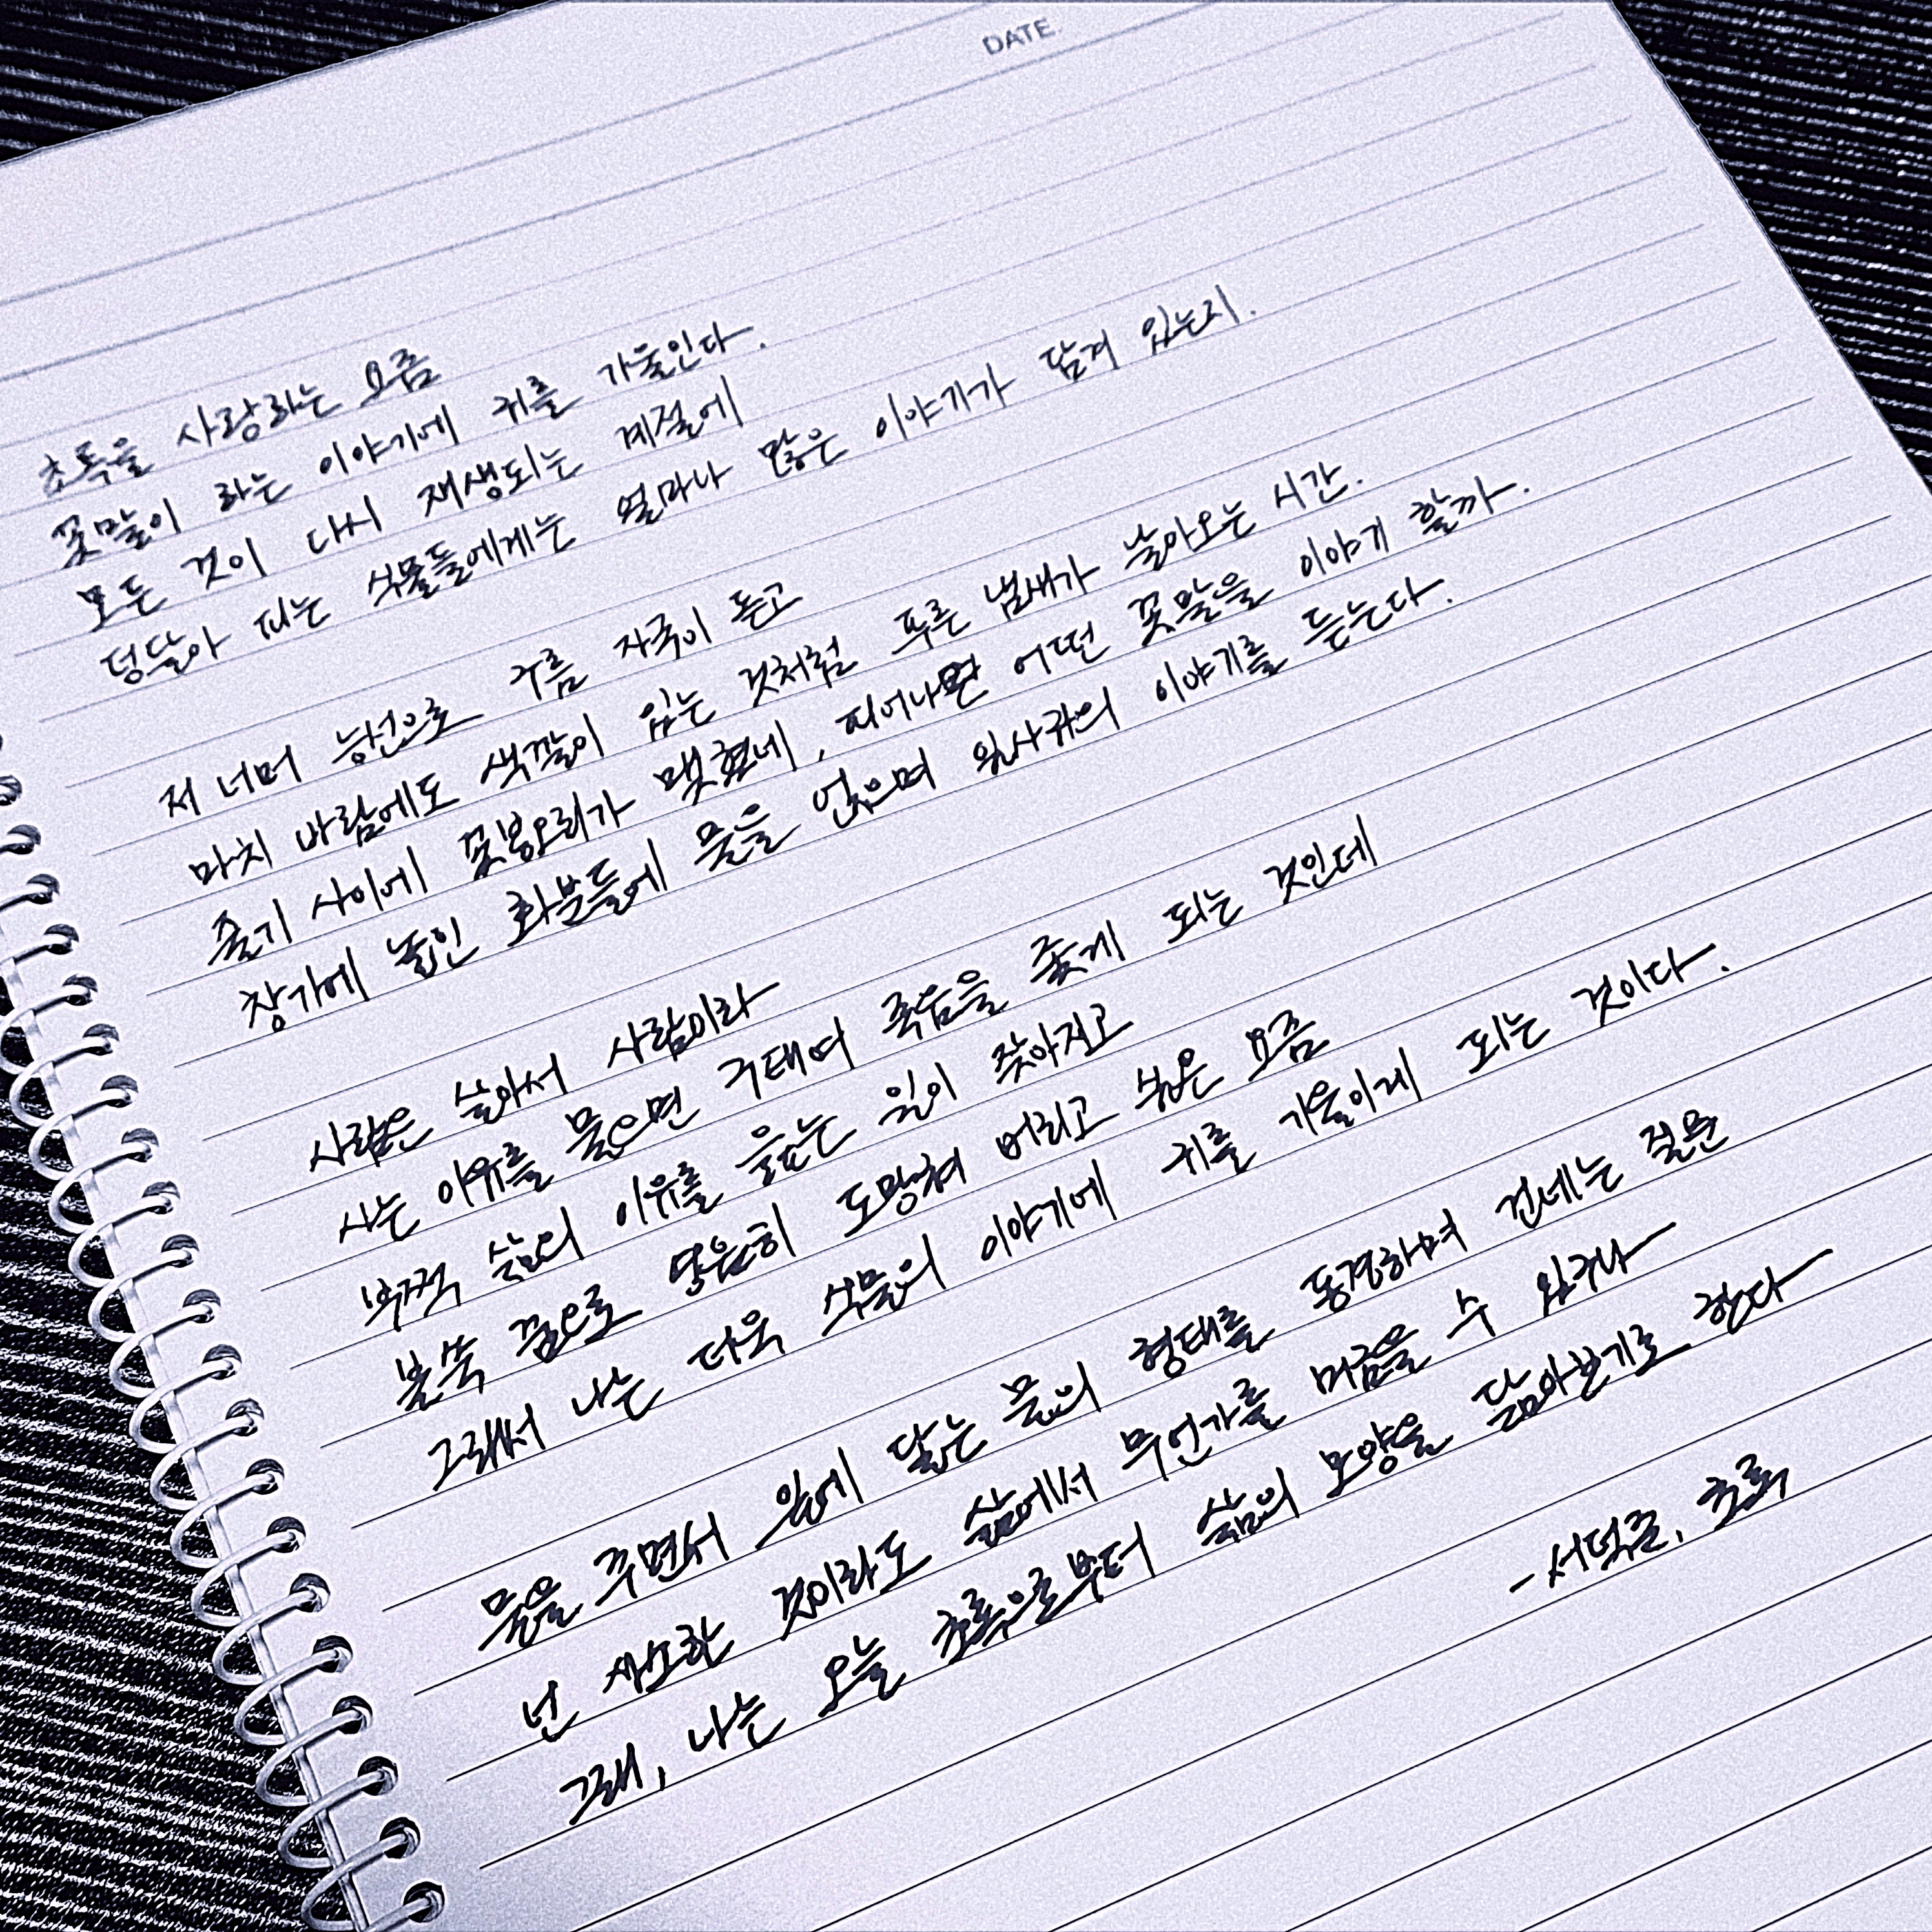 DATE.
초록을 사랑하는 요즘
꽃말이 하는 이야기에 귀를 기울인다.
모든 것이 다시 재생되는 계절에
덩달아 피는 식물들에게는 얼마나 많은 이야기가 담겨 있는지.
저 너머 능선으로 구름 자국이 돋고
마치 바람에도 색깔이 있는 것처럼 푸른 냄새가 날아오는 시간.
줄기 사이에 꽃봉오리가 맺혔네, 피어나면 어떤 꽃말을 이야기 할까.
창가에 놓인 화분들에 물을 얹으며 잎사귀의 이야기를 듣는다.
사람은 살아서 사람이라
사는 이유를 물으면 구태여 죽음을 좇게 되는 것인데
부쩍 삶의 이유를 읊는 일이 잦아지고
불쑥 꿈으로 영원히 도망쳐 버리고 싶은 요즘
그래서 나는 더욱 식물의 이야기에 귀를 기울이게 되는 것이다.
물을 주면서 잎에 닿는 물의 형태를 동경하며 건네는 질문
넌 사소한 것이라도 삶에서 무언가를 머금을 수 있구나
그래, 나는 오늘 초록으로부터 삶의 모양을 닮아보기로 한다
- 서덕준, 초록